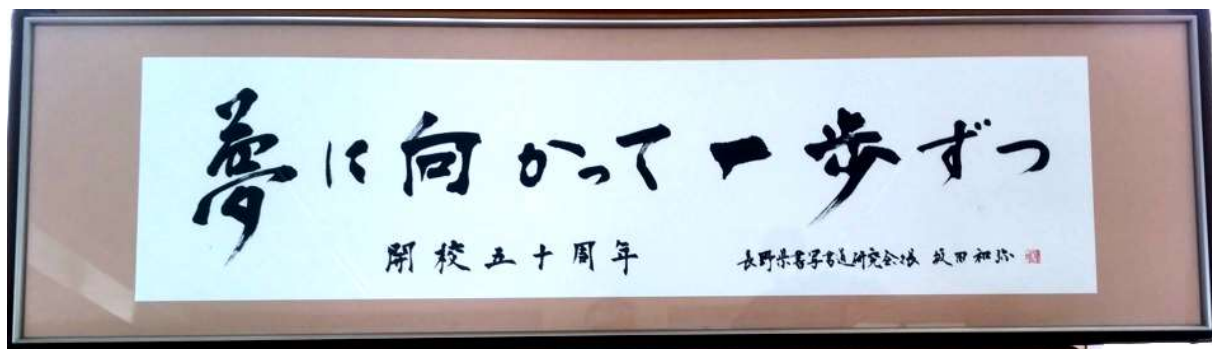 夢に向かって一歩ずつ
開校五十周年
長野県書写書道研究会長 田和弥